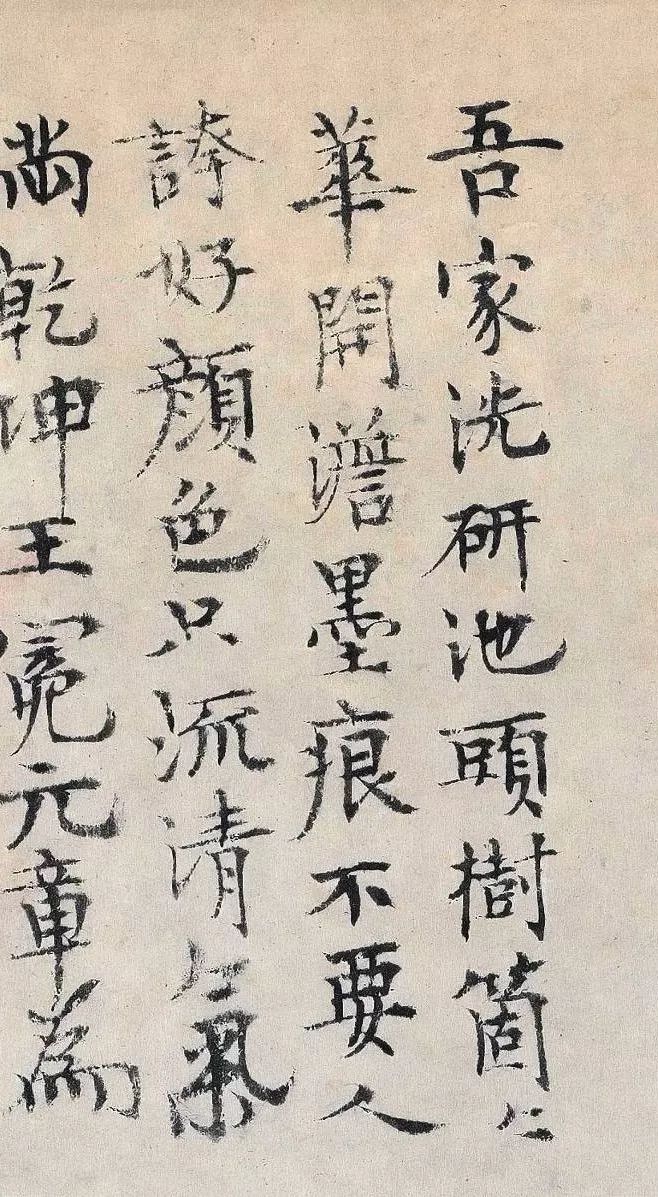 吾家洗研池頭樹箇〻
華開澹墨痕不要人
誇好顏色只流清氣
滿乾坤王冕元章為